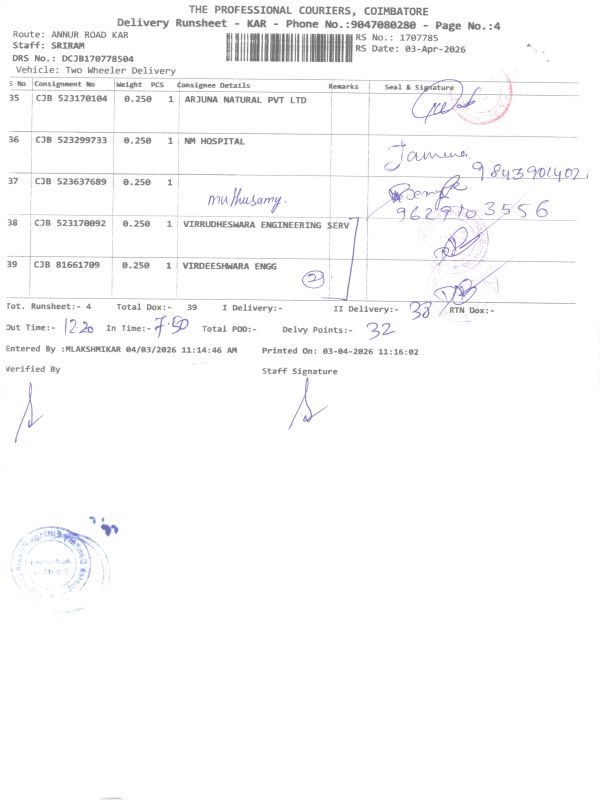 THE PROFESSIONAL COURIERS, COIMBATORE
Delivery Runsheet - KAR - Phone No.:9047080280 - Page No.:4
Route: ANNUR ROAD KAR
RS No.: 1707785
Staff: SRIRAM
RS Date: 03-Apr-2026
DRS No.: DCJB170778504
Vehicle: Two Wheeler Delivery
S No Consignment No Weight PCS Consignee Details Remarks Seal & Signature
35 CJB 523170104 0.250 1 ARJUNA NATURAL PVT LTD
36 CJB 523299733 0.250 1 NM HOSPITAL
9843901402
37 CJB 523637689 0.250 1
muthusamy.
38 CJB 523170092 0.250 1 VIRRUDHESWARA ENGINEERING SERV
39 CJB 81661709 0.250 1 VIRDEESHWARA ENGG
2
Tot. Runsheet:- 4 Total Dox:- 39 I Delivery:- II Delivery:- 38 RTN Dox:-
Out Time:- 12.20 In Time:- 7.50 Total POD:- Delvy Points:- 32
Entered By :MLAKSHMIKAR 04/03/2026 11:14:46 AM Printed On: 03-04-2026 11:16:02
Verified By Staff Signature